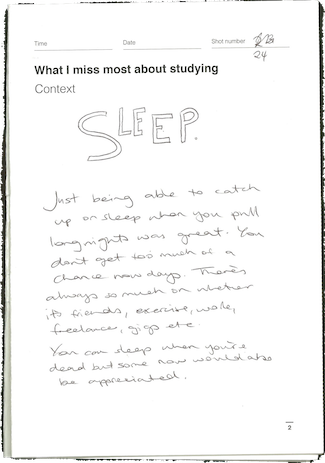 Time Date Shot number 23
24
What I miss most about studying
Context
SLEEP.
Just being able to catch
up on sleep when you pull
long nights was great. You
don't get too much of a
chance nowdays. There's
always so much on whether
it's friends, exercise, work,
freelance, gigs etc.
You can sleep when you're
dead but some now would also
be appreciated.
2